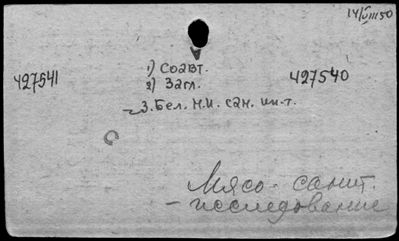 14/VIII 50
1) Соавт.
427541 2) Загл. 427540
3. Бел. н.и. сан. ин-т.
Мясо - санит.
- исследование